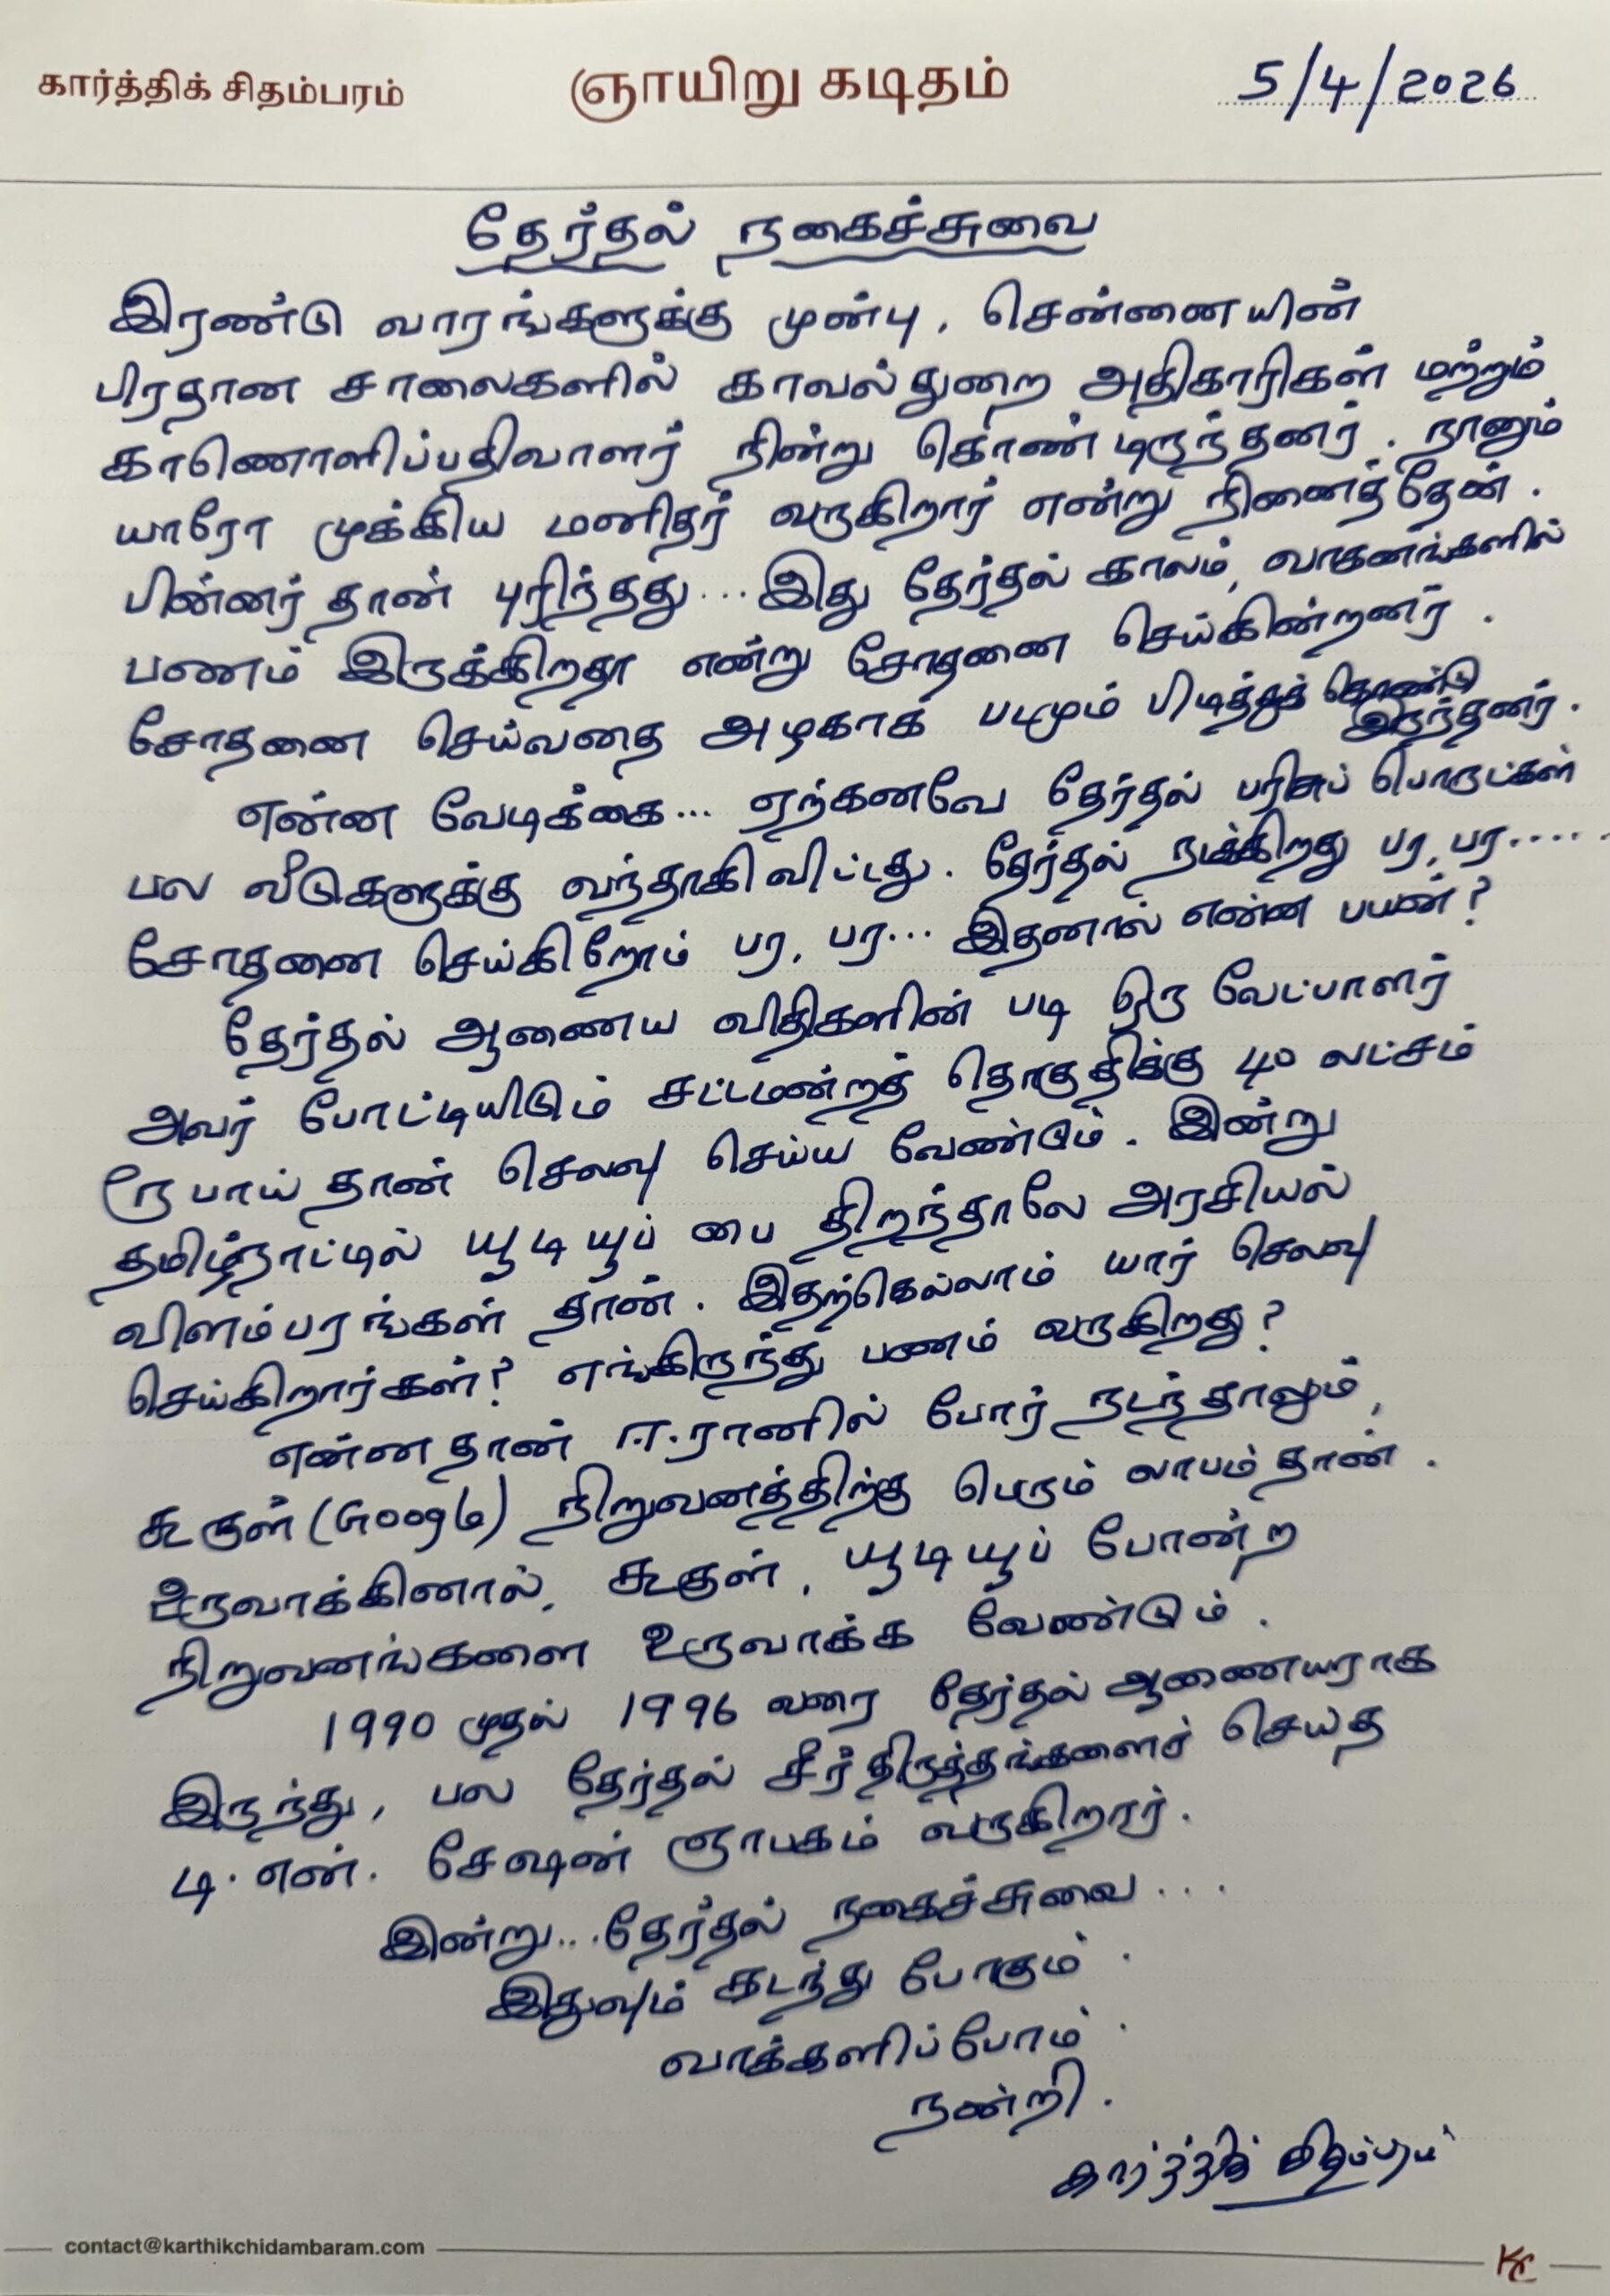 கார்த்திக் சிதம்பரம்
ஞாயிறு கடிதம்
5/4/2026
தேர்தல் நகைச்சுவை
இரண்டு வாரங்களுக்கு முன்பு, சென்னையின்
பிரதான சாலைகளில் காவல்துறை அதிகாரிகள் மற்றும்
காணொளிப்பதிவாளர் நின்று கொண்டிருந்தனர். நானும்
யாரோ முக்கிய மனிதர் வருகிறார் என்று நினைத்தேன்.
பின்னர் தான் புரிந்தது... இது தேர்தல் காலம், வாகனங்களில்
பணம் இருக்கிறதா என்று சோதனை செய்கின்றனர்.
சோதனை செய்வதை அழகாக படமும் பிடித்துக் கொண்டு
இருந்தனர்.
என்ன வேடிக்கை... ஏற்கனவே தேர்தல் பரிசுப் பொருட்கள்
பல வீடுகளுக்கு வந்தாகிவிட்டது. தேர்தல் நடக்கிறது பர, பர.....
சோதனை செய்கிறோம் பர, பர... இதனால் என்ன பயன்?
தேர்தல் ஆணைய விதிகளின் படி ஒரு வேட்பாளர்
அவர் போட்டியிடும் சட்டமன்றத் தொகுதிக்கு 40 லட்சம்
ரூபாய் தான் செலவு செய்ய வேண்டும். இன்று
தமிழ்நாட்டில் யூடியூப் பை திறந்தாலே அரசியல்
விளம்பரங்கள் தான். இதற்கெல்லாம் யார் செலவு
செய்கிறார்கள்? எங்கிருந்து பணம் வருகிறது?
என்னதான் ஈ.ரானில் போர் நடந்தாலும்,
கூகுள் (Google) நிறுவனத்திற்கு பெரும் லாபம் தான்.
உருவாக்கினால், கூகுள், யூடியூப் போன்ற
நிறுவனங்களை உருவாக்க வேண்டும்.
1990 முதல் 1996 வரை தேர்தல் ஆணையராக
இருந்து, பல தேர்தல் சீர்திருத்தங்களைச் செய்த
டி.என். சேஷன் ஞாபகம் வருகிறார்.
இன்று... தேர்தல் நகைச்சுவை...
இதுவும் கடந்து போகும்.
வாக்களிப்போம்.
நன்றி.
கார்த்திக் சிதம்பரம்
contact@karthikchidambaram.com
KC